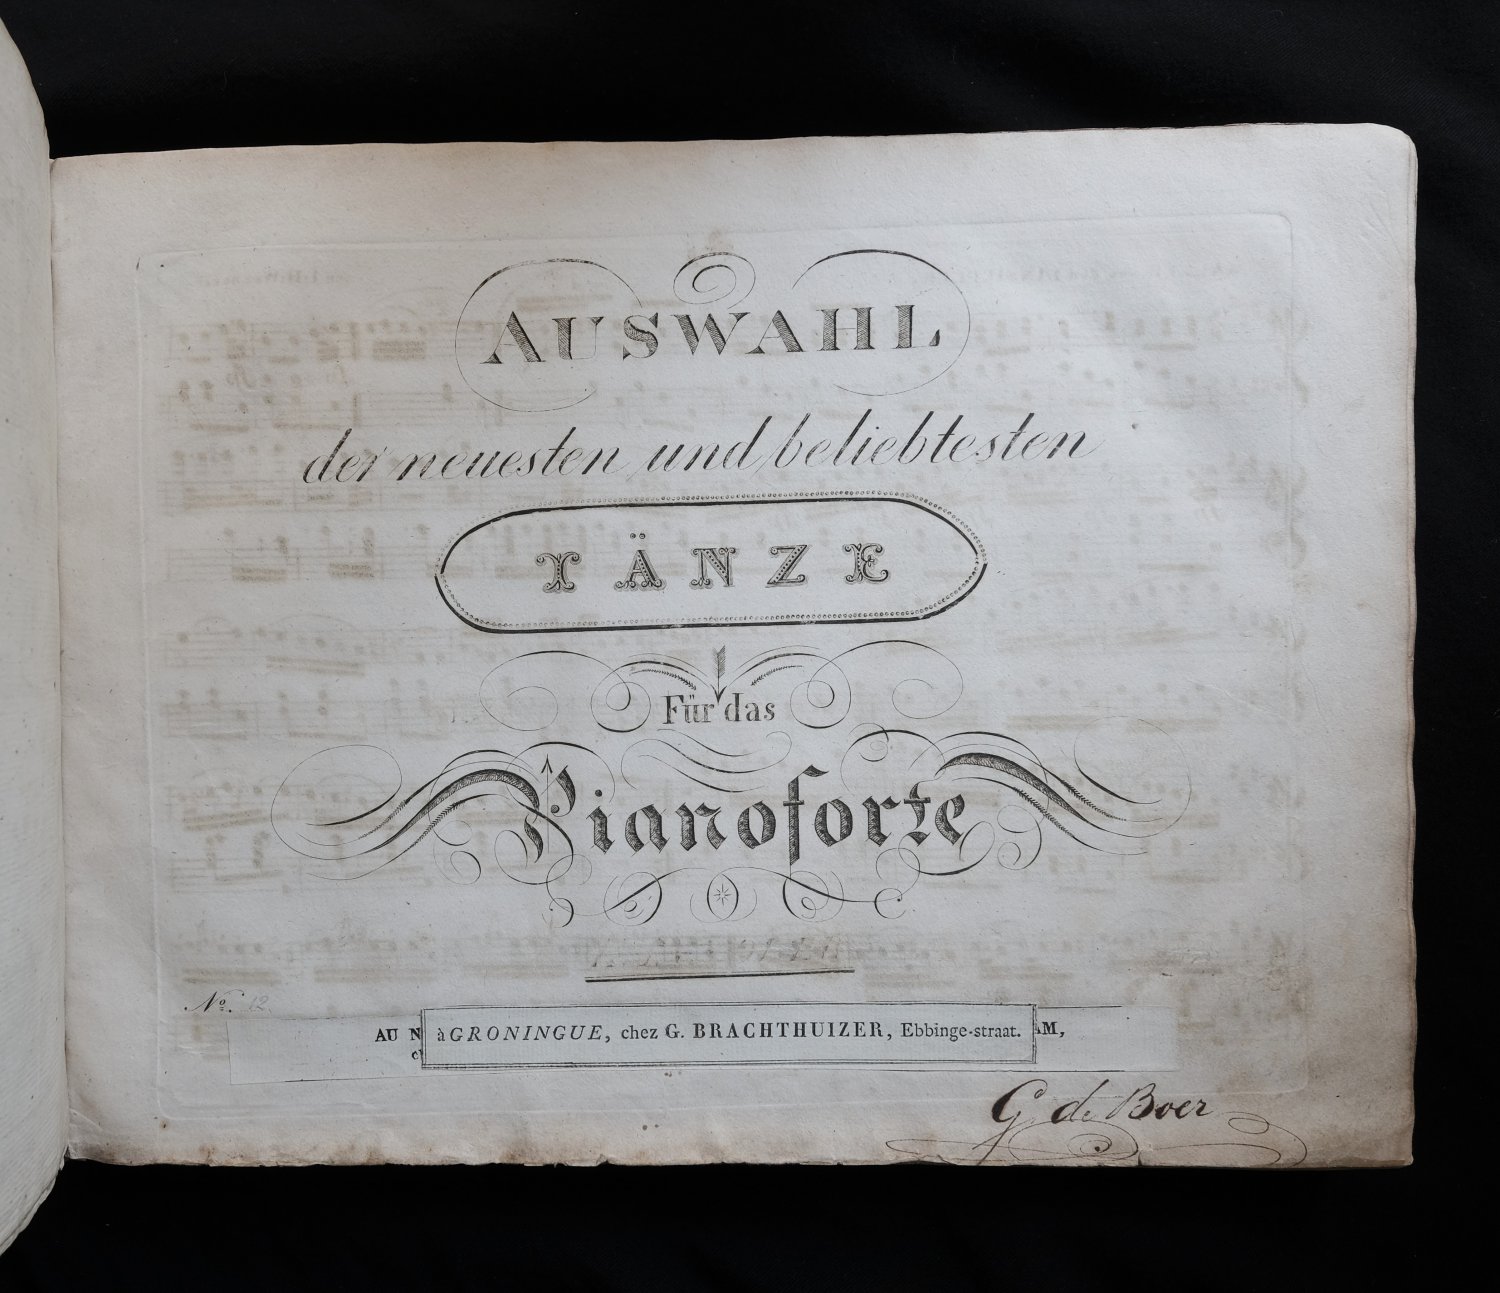 AUSWAHL
der neuesten und beliebtesten
TÄNZE
Für das
Pianoforte
No. 12.
AU N
à GRONINGUE, chez G. BRACHTHUIZER, Ebbinge-straat.
AM,
G. de Boer